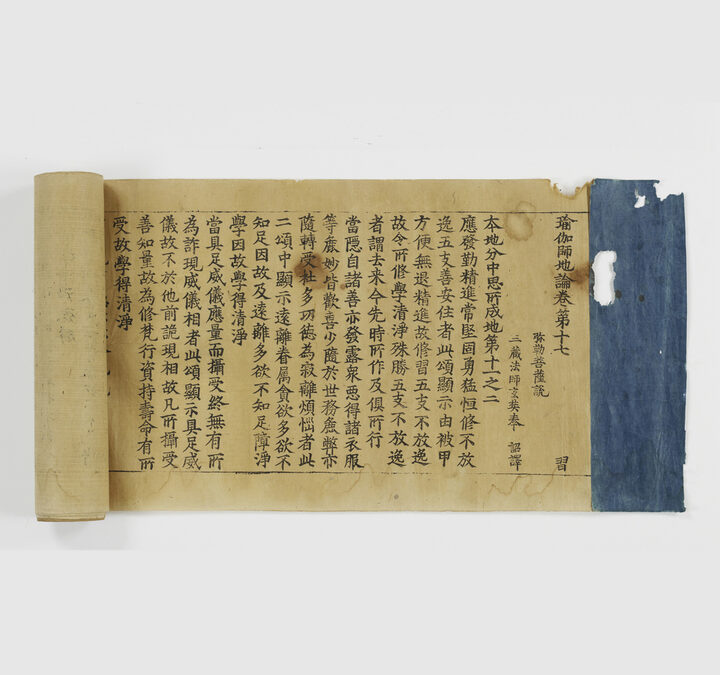 瑜伽師地論卷第十七　習
弥勒菩薩說
三藏法師玄奘奉　詔譯
本地分中思所成地第十一之二
應發勤精進常堅固勇猛恒修不放
逸五支善安住者此頌顯示由被甲
方便無退精進故修習五支不放逸
故令所修學清淨殊勝五支不放逸
者謂去来今先時所作及俱所行
當隱自諸善亦發露衆惡得諸衣服
等麁妙皆歡喜少隨於世務麁弊亦
隨轉受杜多功德為寂離煩惱者此
二頌中顯示遠離眷属貪欲多欲不
知足因故及遠離多欲不知足障淨
學因故學得清淨
當具足威儀應量而攝受終無有所
為詐現威儀相者此頌顯示具足威
儀故不於他前詭現相故凡所攝受
善知量故為修梵行資持壽命有所
受故學得清淨